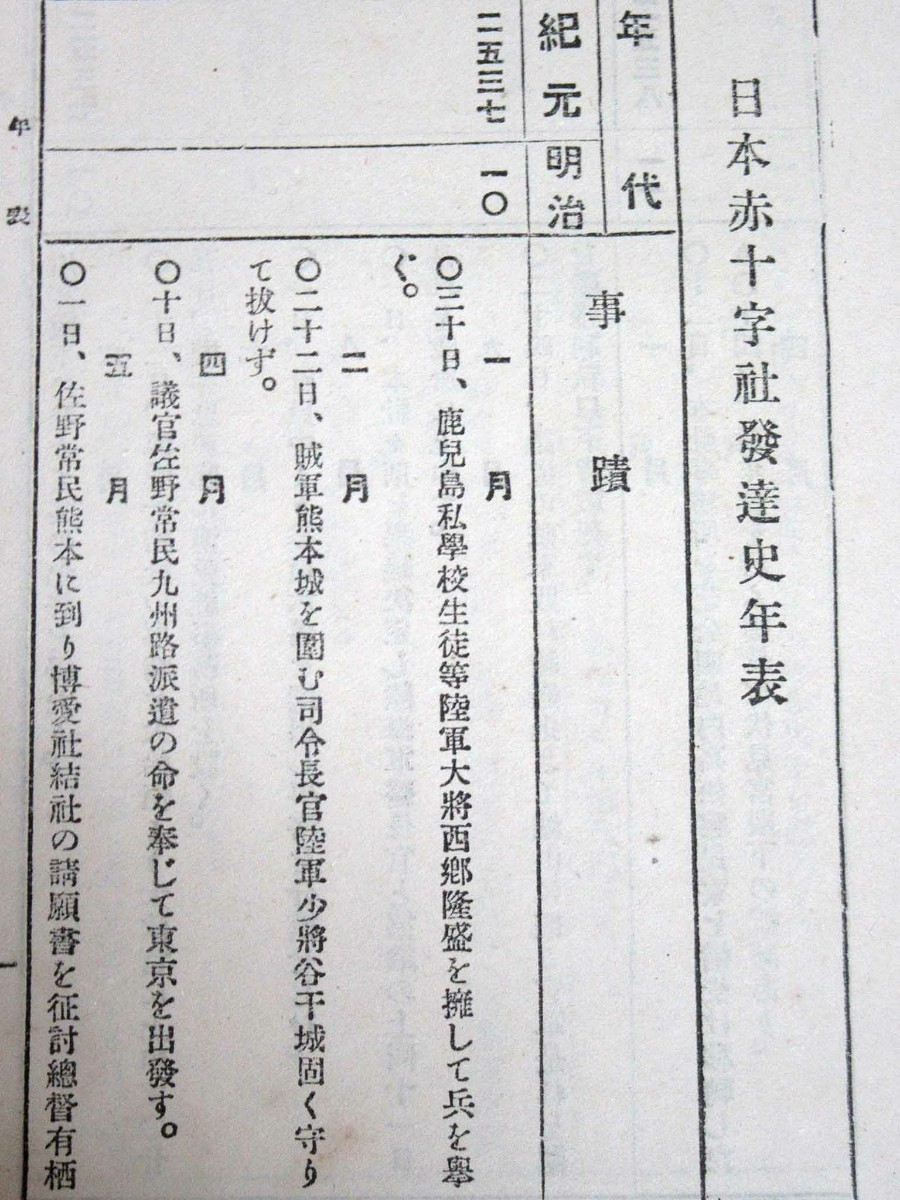 日本赤十字社發達史年表
年代
紀元
明治
事蹟
二五三七
一〇
一月
〇三十日、鹿兒島私學校生徒等陸軍大將西鄕隆盛を擁して兵を擧
ぐ。
二月
〇二十二日、賊軍熊本城を圍む司令長官陸軍少將谷干城固く守り
て拔けず。
四月
〇十日、議官佐野常民九州路派遣の命を奉じて東京を出發す。
五月
〇一日、佐野常民熊本に到り博愛社結社の請願書を征討總督有栖
年表
一